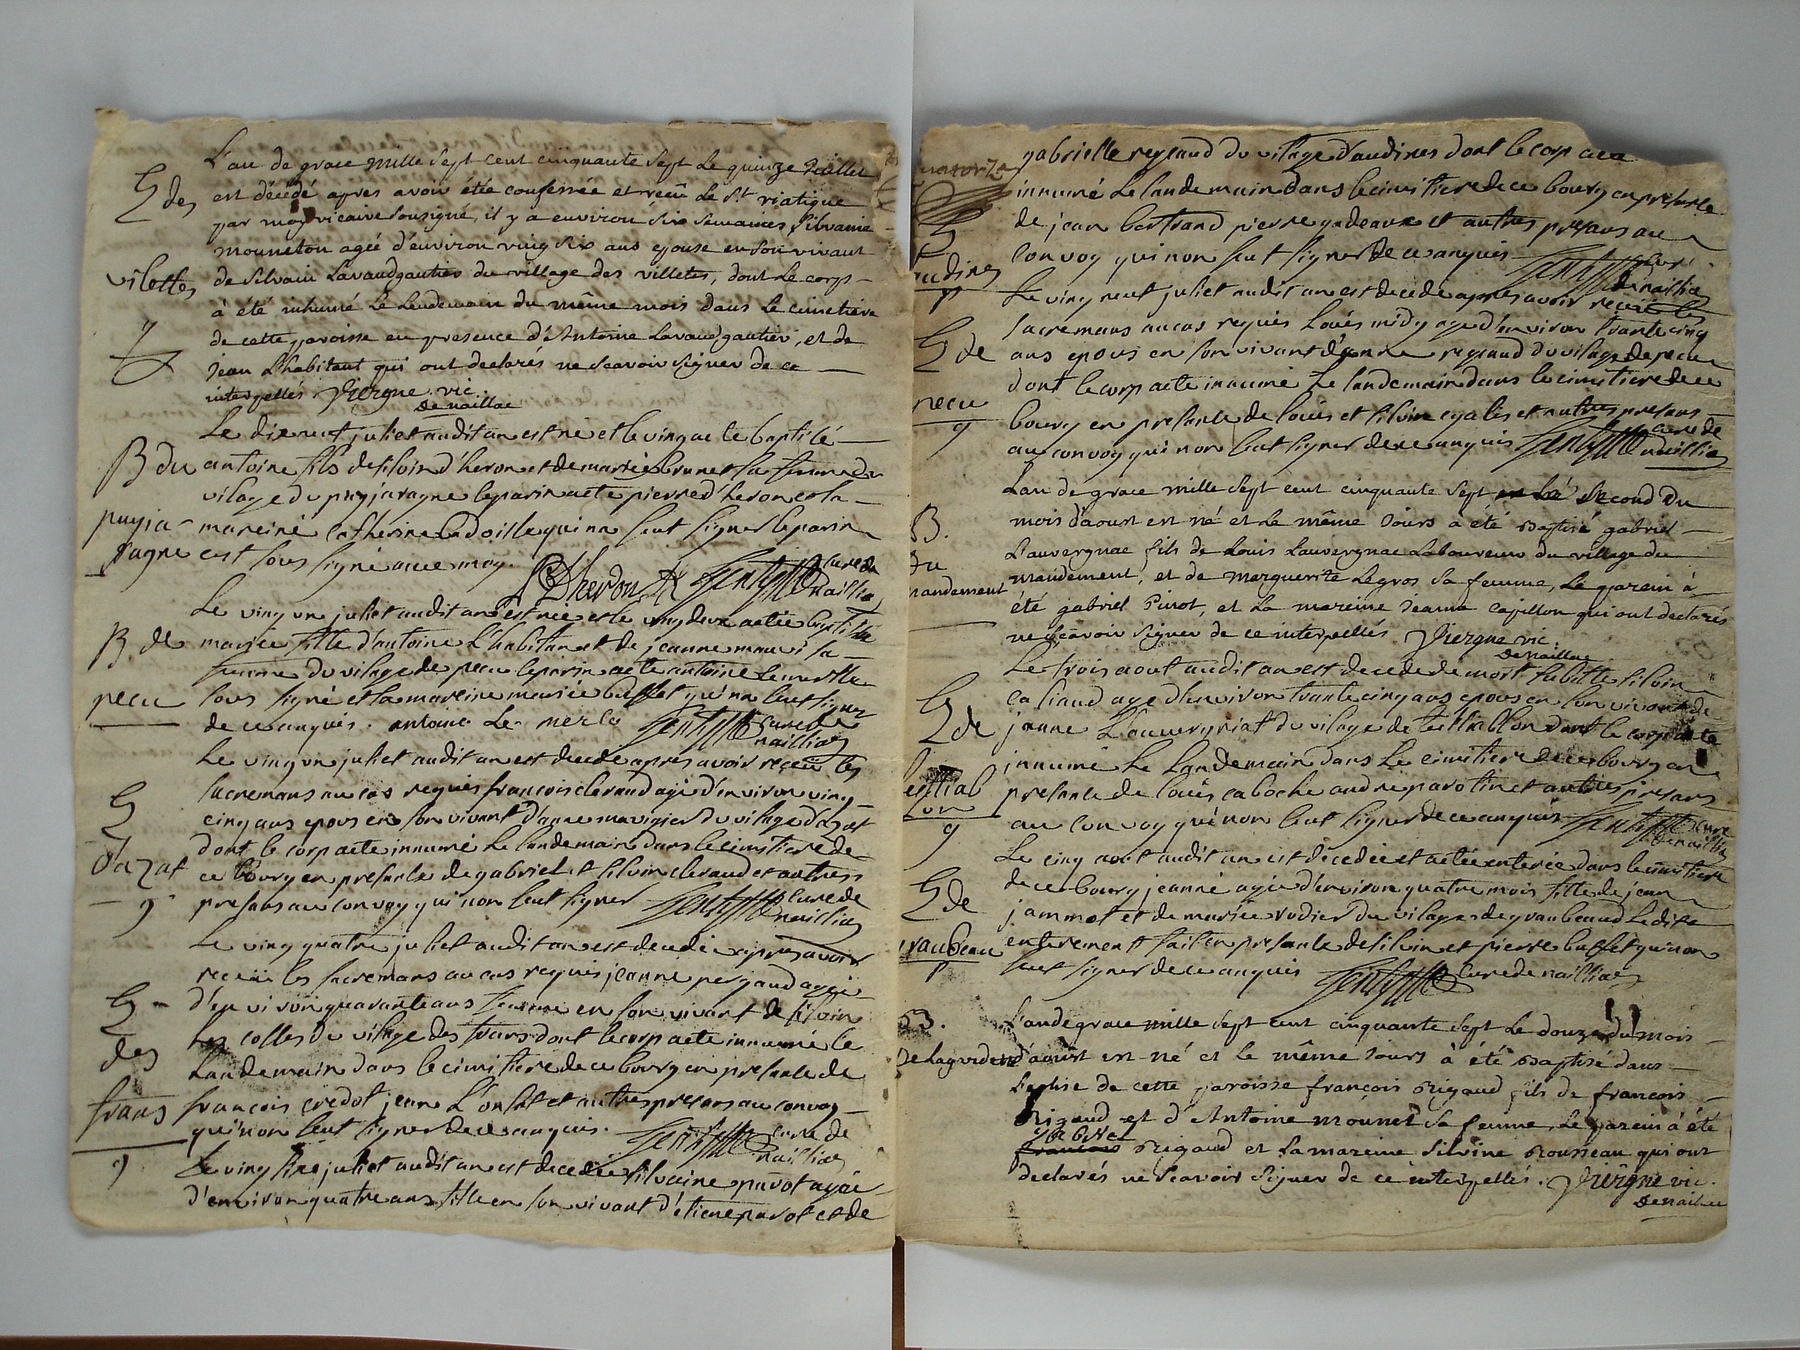 L'an de grace mille sept cent cinquante sept le quinze Juillet
E des est décédé apres avoir été confessée et reçu le St. viatique
par moy vicaire sousigné, il y a environ six semaines, Silvaine
mouneton agée d'environ vingt six ans epouse en son vivant
vilettes de Silvain Lavaudgautier du village des villetes, dont le corps
à été inhumé le lendemain du même mois dans le cimetiere
de cette paroisse en presence d'Antoine Lavaudgautier, et de
Jean l'habitant qui ont declarés ne scavoir signer de ce
interpellés Viergne vic.
de naillac
Le dixneuf juliet audit an est né et le vingt a ete baptisé
B du antoine fils de silvin d'heron et de marie brunet sa femme du
vilage du puyjaragne le parin a ete pierre d'heron et la
puyja mareine catherine qui na seut signer le parin
ragne est sous signé avec moy.
P Dheron curé de
naillac
Le vingt un juliet audit an est née et le vingt deux a etée baptisée
B. de marie fille d'antoine l'habitan et de jeanne mauvi sa
femme du vilage de pecu le parin a ete antoine le merlle
pecu sous signé et la mareine marie buffet qui na seut signer
de ce anquis. antoine le merle curé de
naillac
Le vingt un juliet audit an est decedé apres avoir reçeu les
E sacremans au cas requis françois claraud agé d'environ vingt
cinq ans epous en son vivant d'anne du vilage d'azat
dont le corp a ete innumé le landemain dans le cimitiere de
d'azat ce bourg en presance de gabriel et silvin claraud et autres
9 presans au convoy qui non seut signer curé de
naillac
Le vingt quatre juliet audit an est decedée apres avoir
reçeu les sacremans au cas requis jeanne agée
E d'environ quarante ans femme en son vivant de silvin
des colles du vilage des frans dont le corp a ete innumé le
landemain dans le cimitiere de ce bourg en presance de
frans francois credot jean et autres presans au convoy
qui non seut signer de ce anquis. curé de
naillac
9 Le vingt juliet audit an est decedée silvaine parot agée
d'environ quatre ans fille en son vivant d'etiene parot et de
gabrielle rigaud du vilage d'audines dont le corp a ete
quatorze innumé le landemain dans le cimitiere de ce bourg en presance
de jean bertrand pierre gadeaux et autres presans au
convoy qui non seut signer de ce anquis curé
audines de naillac
Le vingt neuf juliet audit an est decedé apres avoir reçeu les
sacremans au cas requis Louis midy agé d'environ trante cinq
E de ans epous en son vivant d'anne rigaud du vilage de pecu
dont le corp a ete innumé le landemain dans le cimitiere de ce
pecu bourg en presance de louis et silvin et autres presans
9 au convoy qui non seut signer de ce anquis curé de
naillac
L'an de grace mille sept cent cinquante sept le second du
B. mois d'aoust est né et le même jours a été baptisé gabriel
du Lauvergnac fils de Louis Lauvergnac laboureur du village du
mandement mandement, et de marguerite Legros sa femme, le parein à
été gabriel Pinot, et la mareine jeanne capillon qui ont declarés
ne scavoir signer de ce interpellés Viergne vic.
de naillac
Le trois aout audit an est decedé de mort subitte silvin
caliaud agé d'environ trante cinq ans epous en son vivant de
E de jeanne L'auvergniat du vilage de testiablon dont le corp a ete
innumé le landemain dans le cimitiere de ce bourg en
presance de louis caboche andre parotin et autres presans
9 au convoy qui non seut signer de ce anquis curé
de naillac
Le cinq aout audit an est decedée et a etée enterée dans le cimitiere
E de de ce bourg jeanne agée d'environ quatre mois fille de jean
jammet et de marie rodier du vilage de graubeaud le dit
graubeau enterement fait en presance de silvin et pierre buffet qui non
seut signer de ce anquis curé de naillac
B. L'an de grace mille sept cent cinquante sept le douze du mois
d'aoust est né et le même jours à été baptisé dans
l'eglise de cette paroisse françois Rigaud fils de francois
Rigaud et d'Antoine mounet sa femme, le parein à été
francois Rigaud et la mareine silvine Rousseau qui ont
declarés ne scavoir signer de ce interpellés. Viergne vic.
de naillac